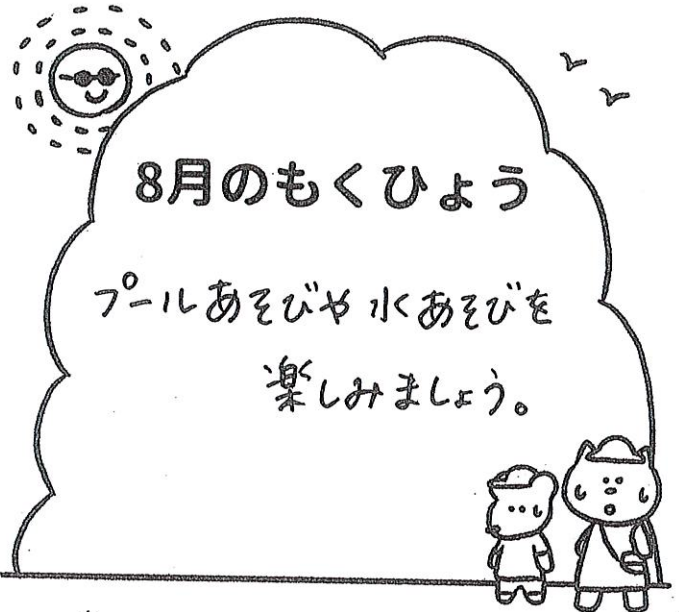 8月のもくひょう
プールあそびや水あそびを
楽しみましょう。